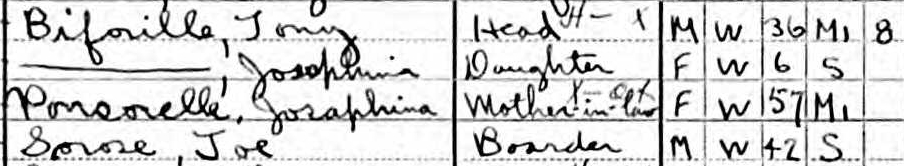 Biforille, Tony Head H - X M W 36 M1 8
———, Josephina Daughter F W 6 S
Ponsorelle, Josaphina Mother-in-law F W 57 M1
Sorose, Joe Boarder M W 42 S